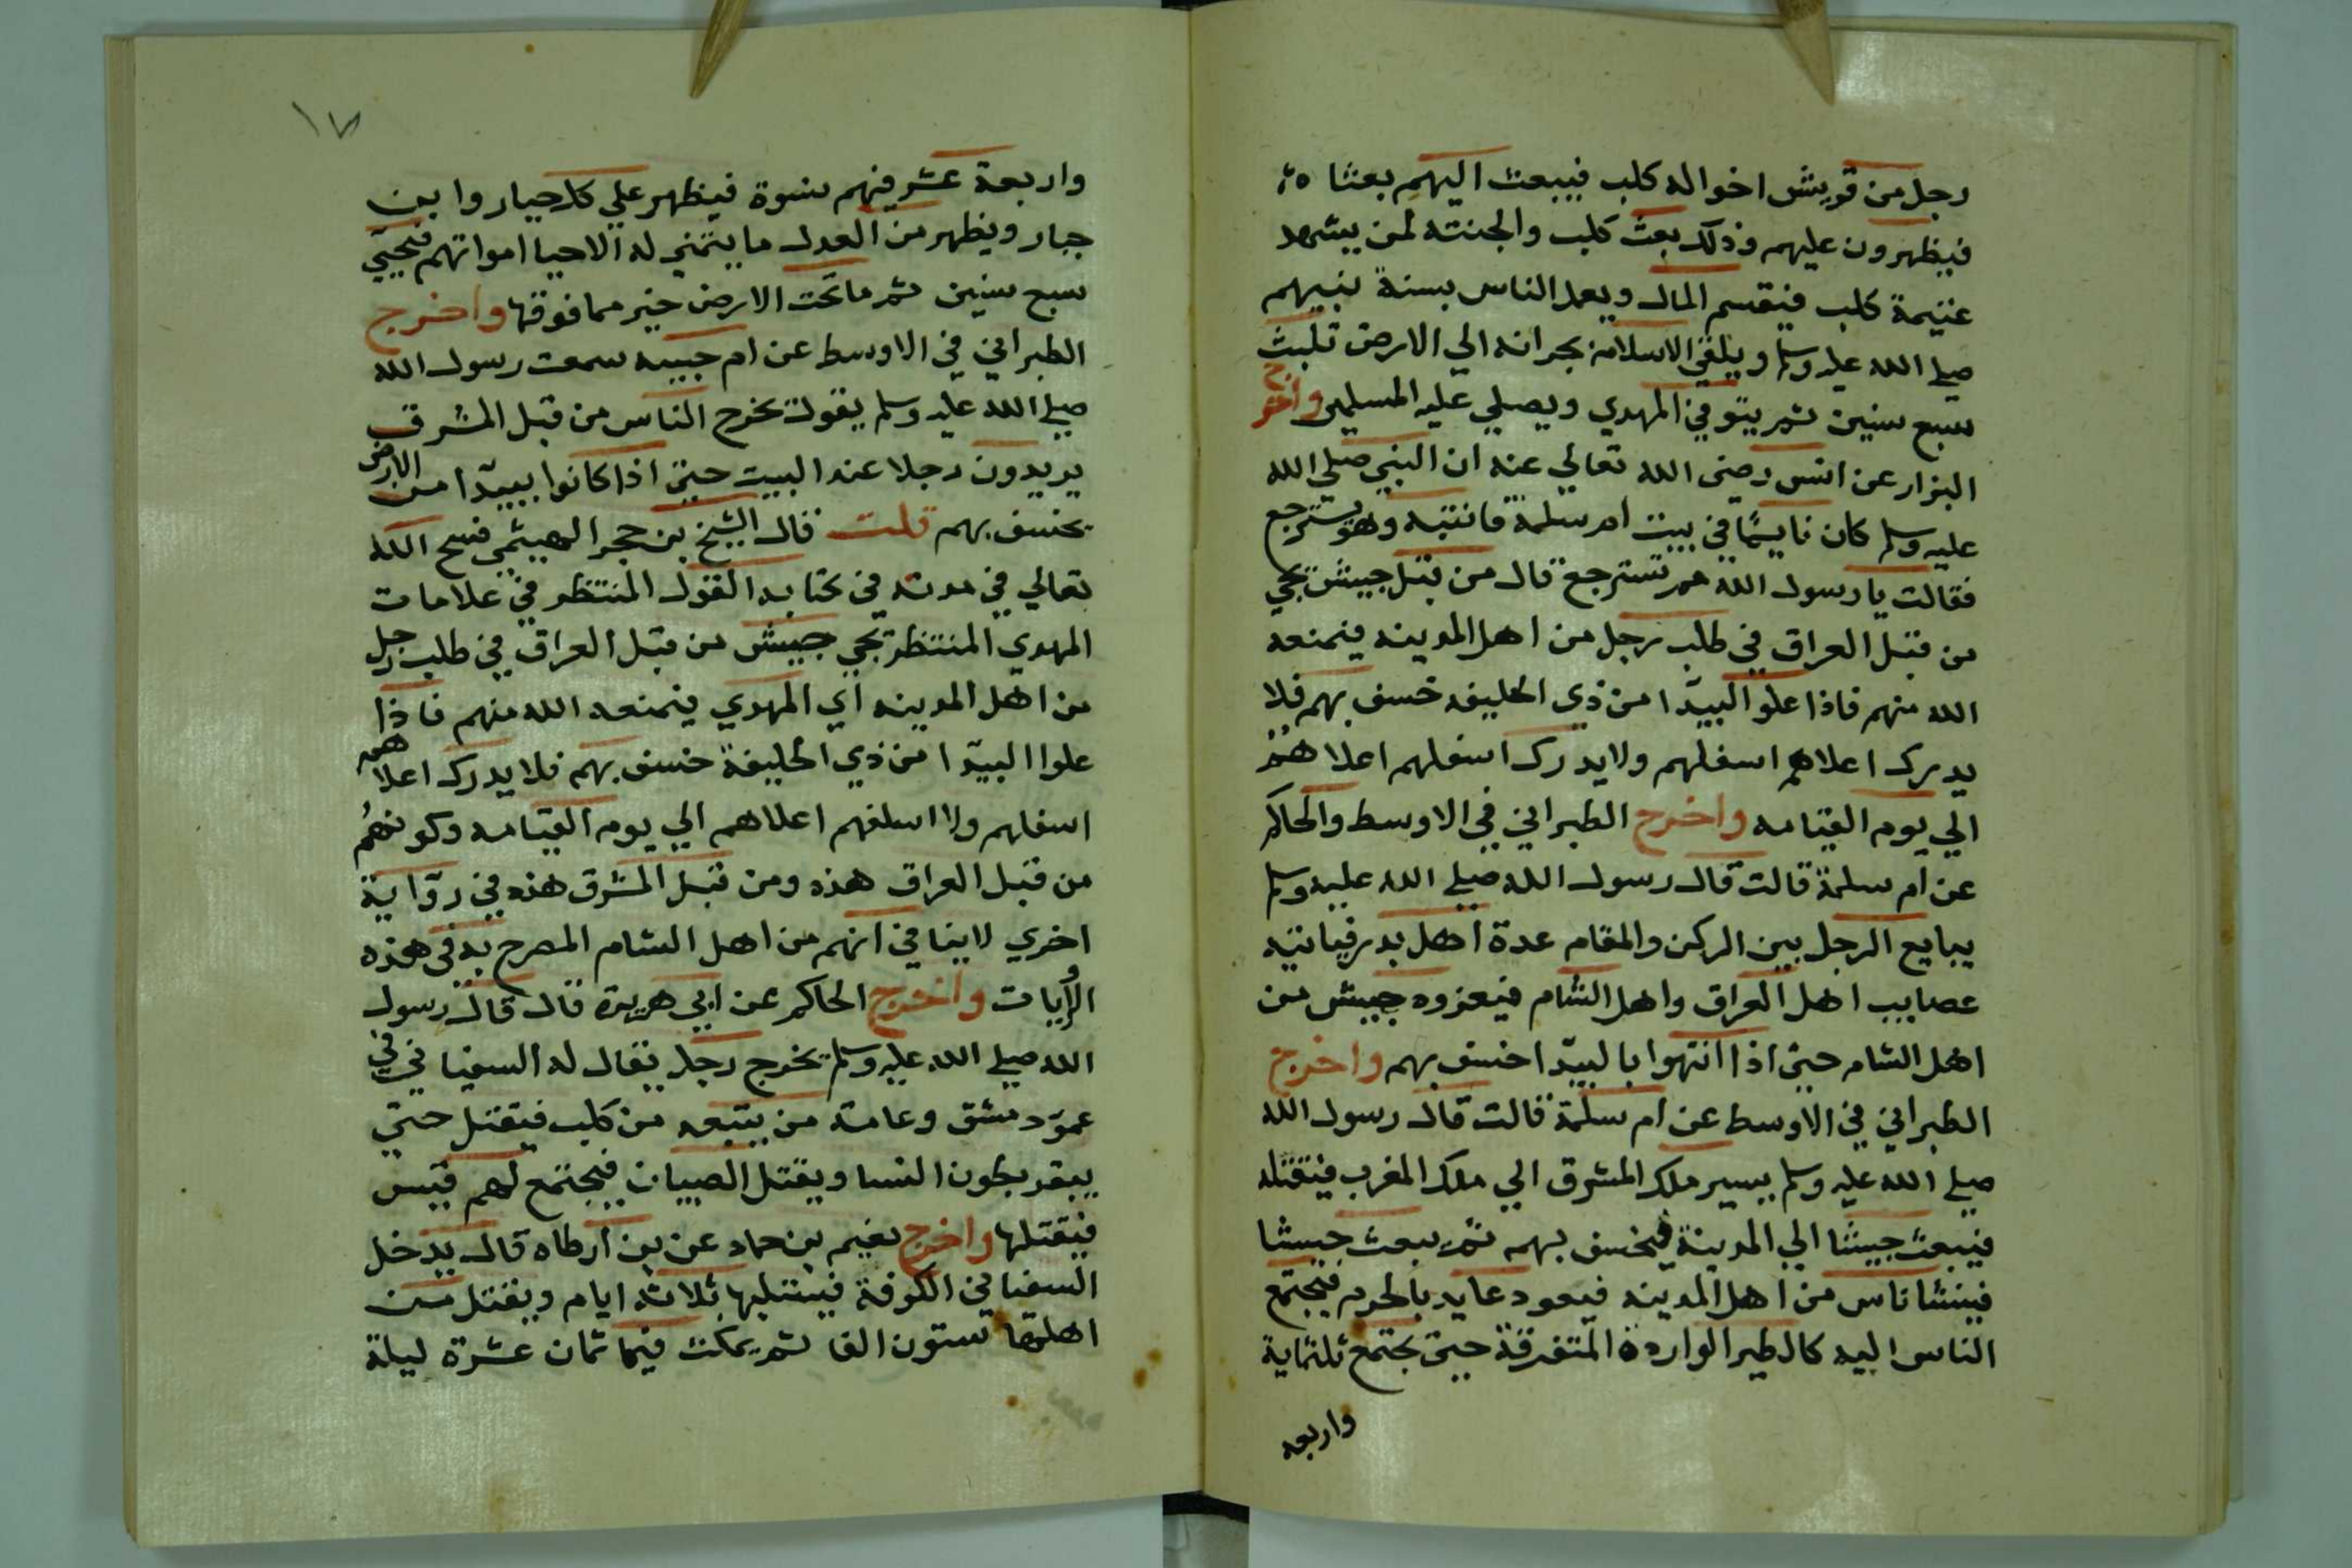 رجل من قريش اخواله كلب فيبعث اليهم بعثا
فيظهرون عليهم وذلك بعث كلب والجنته لمن يشهد
غنيمة كلب فيقسم المال ويعمل الناس بسنة نبيهم
صلي الله عليه وسلم ويلقي الاسلام بجرانه الي الارض تلبث
سبع سنين ثم يتوفي المهدي ويصلي عليه المسلمين واخرج
البزار عن انس رضي الله تعالي عنه ان النبي صلي الله
عليه وسلم كان نايمًا في بيت ام سلمة فانتبه وهو يسترجع
فقالت يا رسول الله مم تسترجع قال من قبل جيش يجي
من قبل العراق في طلب رجل من اهل المدينه فيمنعه
الله منهم فاذا علو البيدا من ذي الحليفه خسف بهم فلا
يدرك اعلاهم اسفلهم ولا يدرك اسفلهم اعلاهم
الي يوم القيامه واخرج الطبراني في الاوسط والحاكم
عن ام سلمة قالت قال رسول الله صلي الله عليه وسلم
يبايع الرجل بين الركن والمقام عدة اهل بدر فياتيه
عصايب اهل العراق واهل الشام فيغزوه جيش من
اهل الشام حتي اذا انتهوا بالبيدا خسف بهم واخرج
الطبراني في الاوسط عن ام سلمة قالت قال رسول الله
صلي الله عليه وسلم يسير ملك المشرق الي ملك المغرب فيقتله
فيبعث جيشا الي المدينة فيخسف بهم ثم يبعث جيشا
فينشا ناس من اهل المدينه فيعود عايد بالحرم فيجتمع
الناس اليه كالطير الواردة المتفرقة حتي يجتمع ثلثماية
واربعه
١٧
واربعة عشر فيهم نسوة فيظهر علي كل جبار وابن
جبار ويظهر من العدل ما يتمني له الاحيا امواتهم فيحيي
سبع سنين ثم ما تحت الارض خير مما فوقها واخرج
الطبراني في الاوسط عن ام حبيبه سمعت رسول الله
صلي الله عليه وسلم يقول تخرج الناس من قبل المشرق
يريدون رجلا عند البيت حتي اذا كانوا ببيدا من الارض
يخسف بهم قلت قال الشيخ بن حجر الهيثمي فسح الله
تعالي في مدته في كتابه القول المنتظر في علامات
المهدي المنتظر يجي جيش من قبل العراق في طلب رجل
من اهل المدينه اي المهدي فيمنعه الله منهم فاذا
علوا البيدا من ذي الحليفة خسف بهم فلا يدرك اعلاهم
اسفلهم ولا اسلفهم اعلاهم الي يوم القيامه وكونهم
من قبل العراق هذه ومن قبل المشرق هذه في رواية
اخري لا ينافي انهم من اهل الشام المصرح به في هذه
الروايات واخرج الحاكم عن ابي هريرة قال قال رسول
الله صلي الله عليه وسلم يخرج رجل يقال له السفياني في
عمق دمشق وعامة من يتبعه من كلب فيقتل حتي
يبقر بطون النسا ويقتل الصبيان فيجتمع لهم قيس
فيقتلها واخرج نعيم بن حماد عن بن ارطاه قال يدخل
السفياني الكوفة فيستلبها ثلاثه ايام ويقتل من
اهلها ستون الفا ثم يمكث فيها ثمان عشرة ليلة